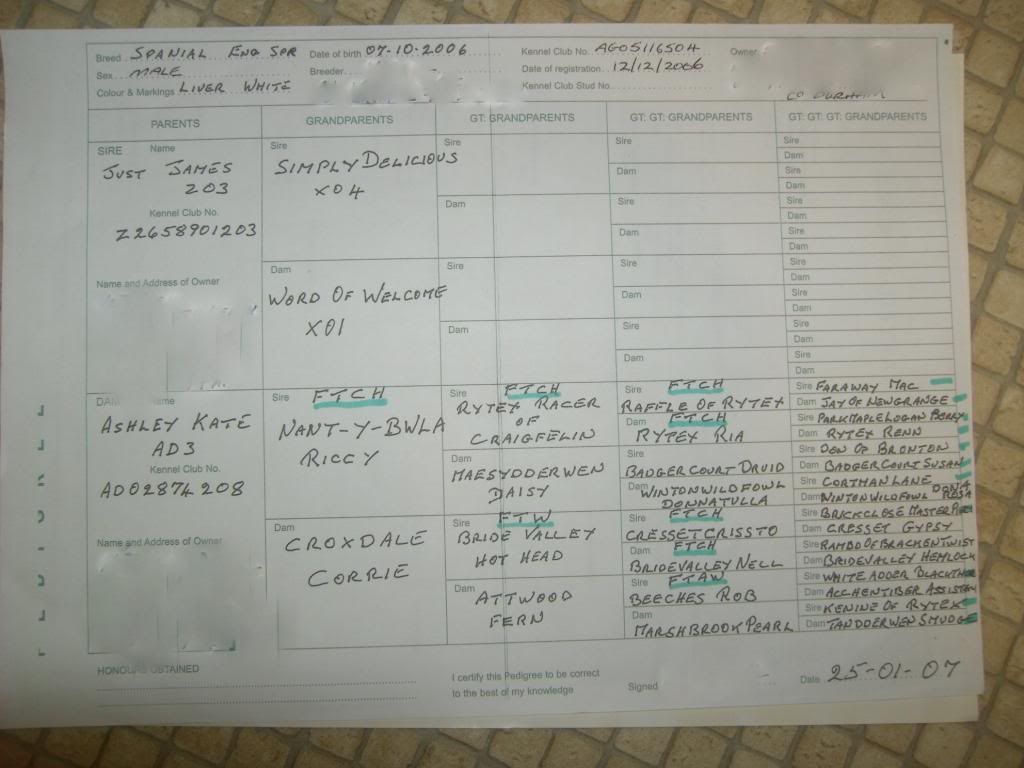 Breed SPANIAL ENG SPR Date of birth 07-10-2006 Kennel Club No. AG05116504 Owner
Sex MALE Breeder Date of registration 12/12/2006
Colour & Markings LIVER WHITE Kennel Club Stud No.
CO DURHAM
PARENTS GRANDPARENTS GT: GRANDPARENTS GT: GT: GRANDPARENTS GT: GT: GT: GRANDPARENTS
SIRE Name
JUST JAMES
203
Kennel Club No.
Z2658901203
Name and Address of Owner
DAM Name
ASHLEY KATE
AD3
Kennel Club No.
AD02874208
Name and Address of Owner
Sire
SIMPLY DELICIOUS
X04
Dam
WORD OF WELCOME
X01
Sire FTCH
NANT-Y-BWLA
RICCY
Dam
CROXDALE
CORRIE
Sire
Dam
Sire
Dam
Sire FTCH
RYTEX RACER
OF
CRAIGFELIN
Dam
MAESYDDERWEN
DAISY
Sire FTW
BRIDE VALLEY
HOT HEAD
Dam
ATTWOOD
FERN
Sire
Dam
Sire
Dam
Sire
Dam
Sire
Dam
Sire FTCH
RAFFLE OF RYTEX
Dam FTCH
RYTEX RIA
Sire
BADGERCOURT DRUID
Dam WINTONWILDFOWL
DONNATULLA
Sire FTCH
CRESSETCRISSTO
Dam FTCH
BRIDEVALLEY NELL
Sire FTAW
BEECHES ROB
Dam
MARSHBROOK PEARL
Sire
Dam
Sire
Dam
Sire
Dam
Sire
Dam
Sire
Dam
Sire
Dam
Sire
Dam
Sire
Dam
Sire FARAWAY MAC
Dam JAY OF NEWGRANGE
Sire PARKMAPLE LOGAN BERRY
Dam RYTEX RENN
Sire DON OF BRONTON
Dam BADGERCOURT SUSAN
Sire CORTMAN LANE
Dam WINTONWILDFOWL DONA ROSA
Sire BRICKCLOSE MASTER
Dam CRESSET GYPSY
Sire RAMBO OF BRACKENTWIST
Dam BRIDEVALLEY HEMLOCK
Sire WHITE ADDER
Dam ACCHENTIBER
Sire KENINE OF RYTEX
Dam TANDDERWEN SMUDGE
HONOURS OBTAINED
I certify this Pedigree to be correct
to the best of my knowledge
Signed
Date 25-01-07